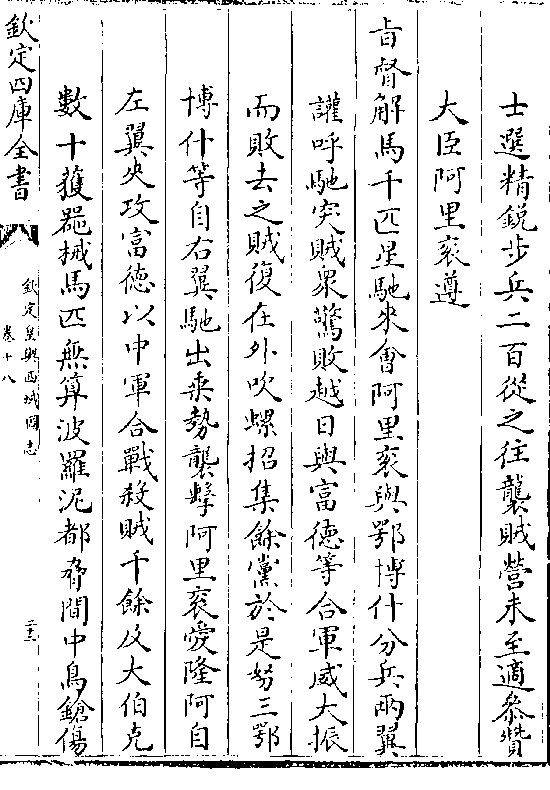 士選精銳步兵二百從之往襲賊營未至適叅贊
大臣阿里衮遵
旨督解馬千匹星馳來會阿里衮與鄂博什分兵兩翼
讙呼馳突賊衆驚敗越日與富德等合軍威大振
而敗去之賊復在外吹螺招集餘黨於是努三鄂
博什等自右翼馳出乗勢襲擊阿里衮愛隆阿自
左翼夾攻富德以中軍合戰殺賊千餘及大伯克
數十獲器械馬匹無算波羅泥都脅間中鳥鎗傷
欽定四庫全書
欽定皇輿西域圖志
卷十八